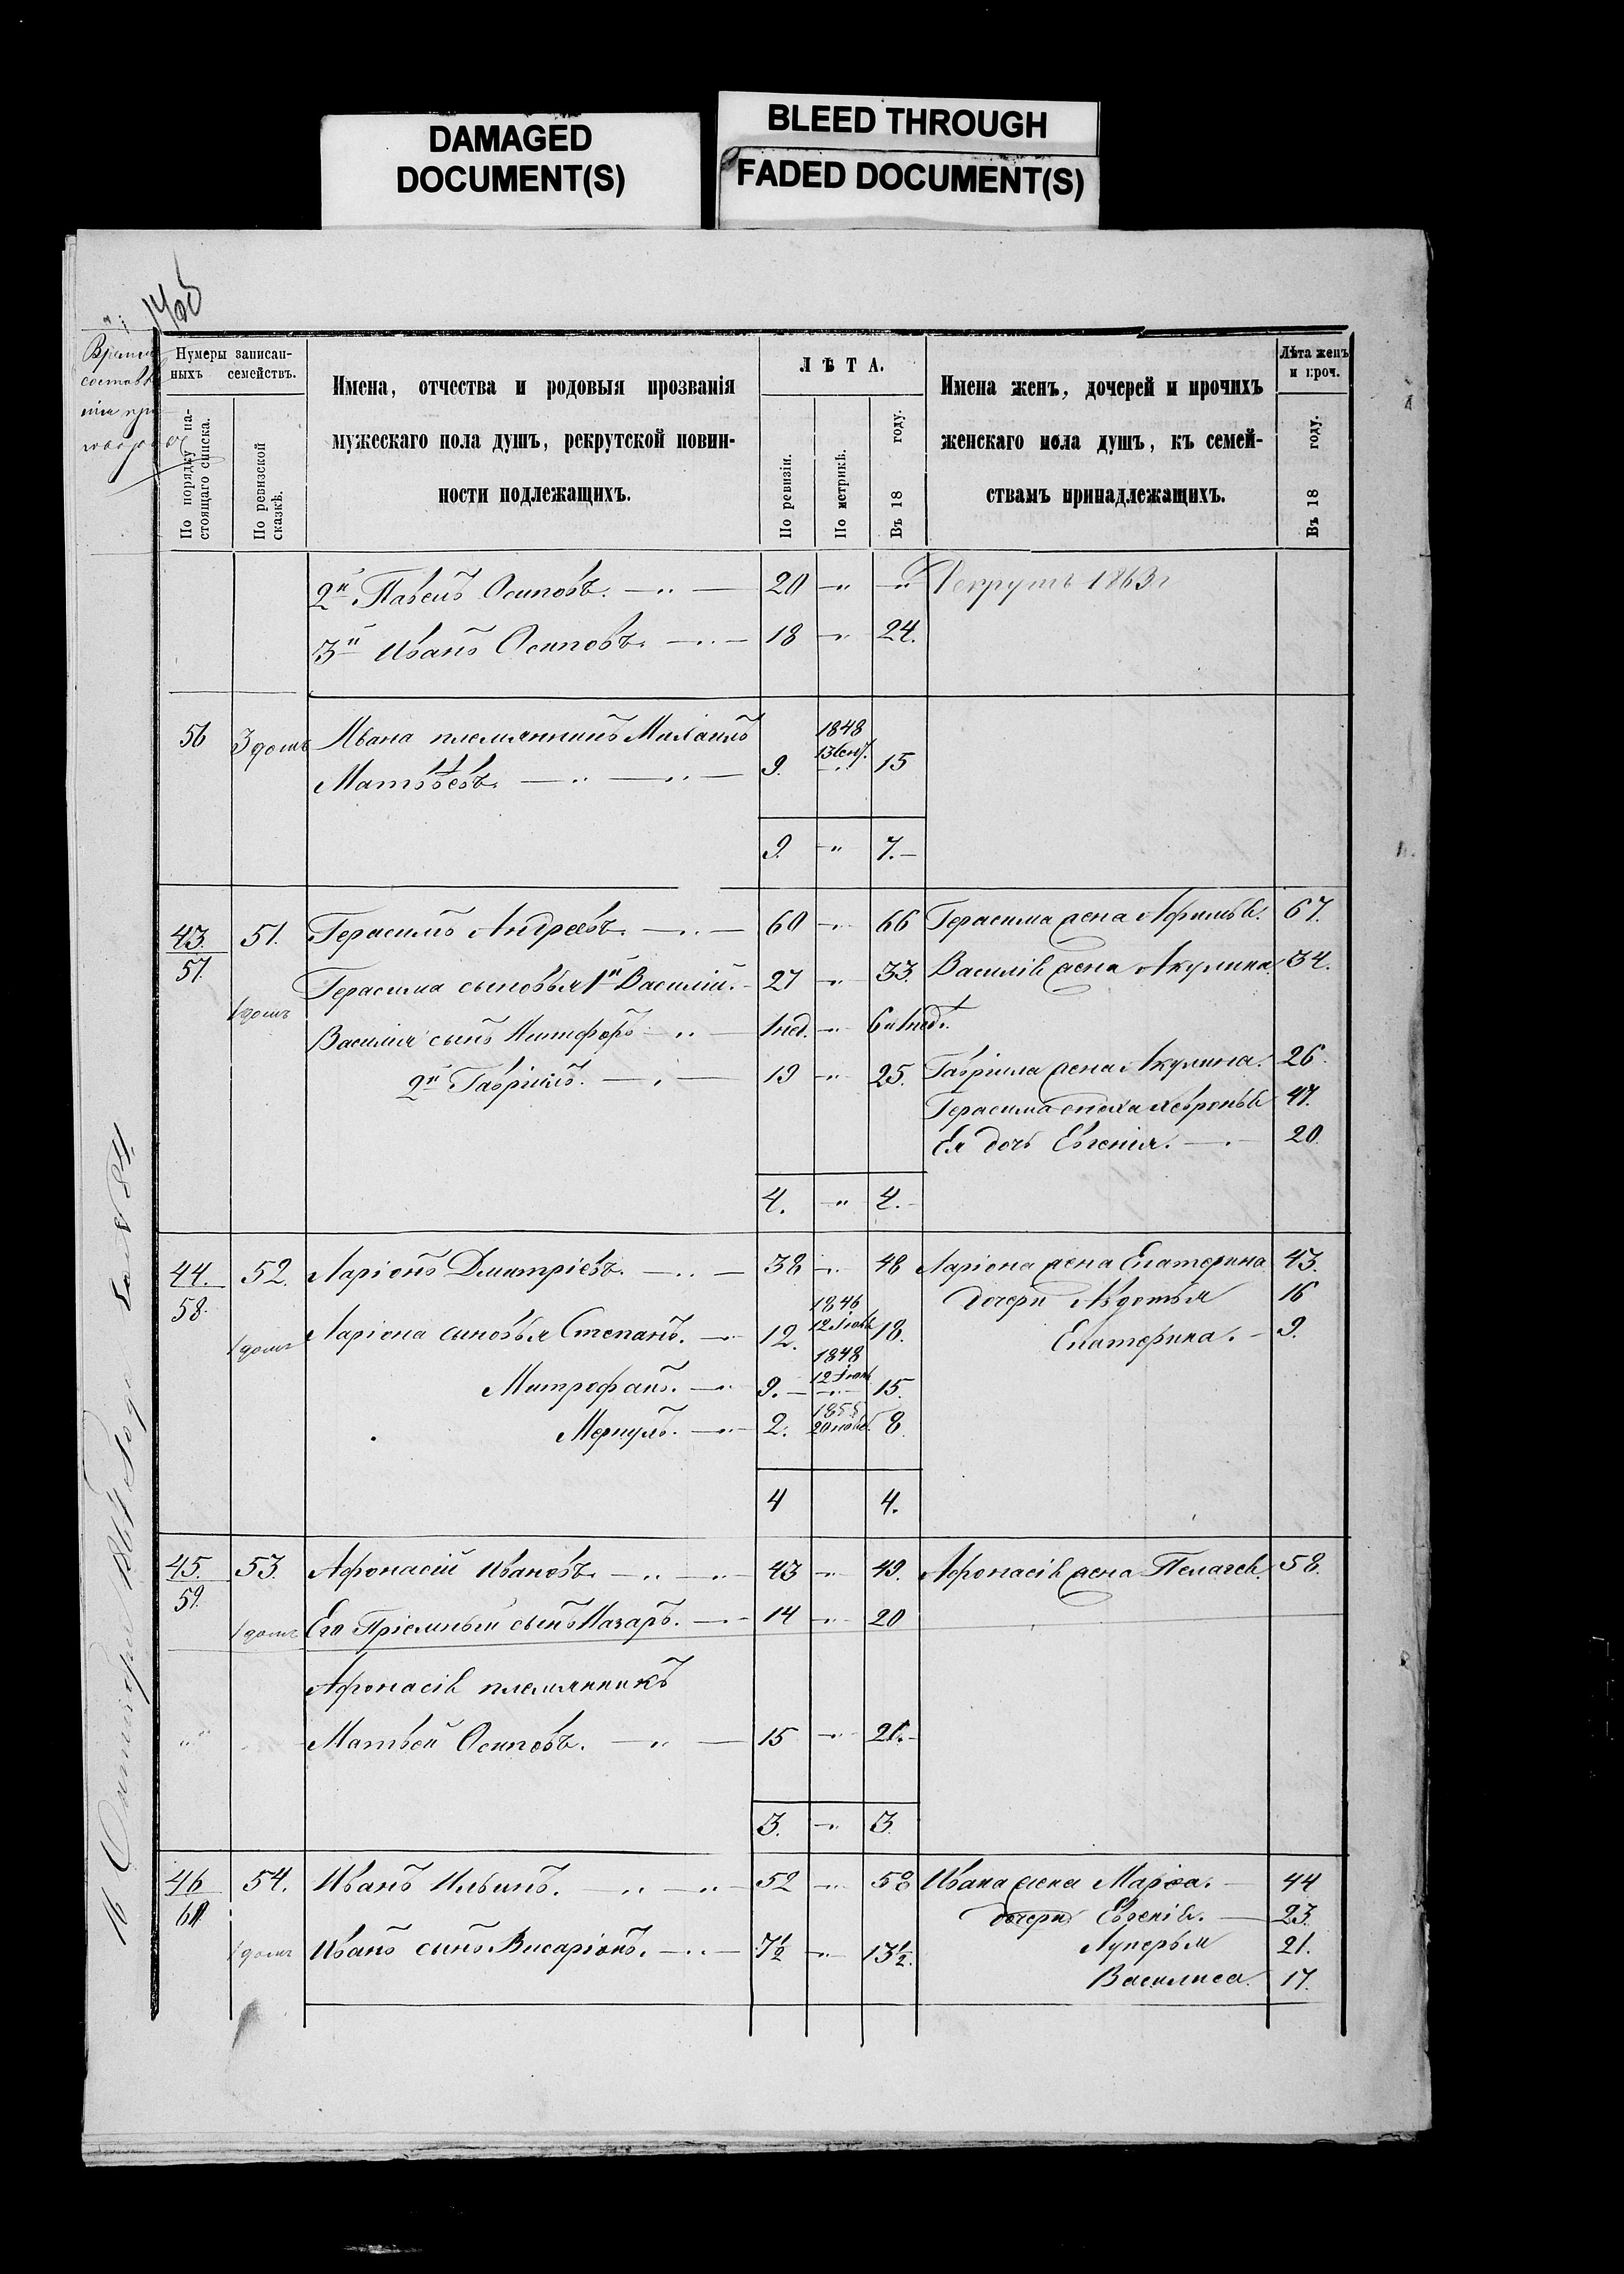 DAMAGED
DOCUMENT(S)
BLEED THROUGH
FADED DOCUMENT(S)
Нумеры записан-
ныхъ семействъ.
По порядку на-
стоящаго списка.
По ревизской
сказкѣ.
Имена, отчества и родовыя прозванія
мужескаго пола душъ, рекрутской повин-
ности подлежащихъ.
ЛѢТА.
По ревизіи.
По метрикѣ.
Въ 18 году.
Имена женъ, дочерей и прочихъ
женскаго пола душъ, къ семей-
ствамъ принадлежащихъ.
Лѣта женъ
и проч.
Въ 18 году.
2й Павелъ Осиповъ. 20 Рекрутъ 1863г
3й Иванъ Осиповъ 18 24.
56 3 домъ Ивана племянникъ Михаилъ 1848
Матвѣевъ 9. 13 15
9. 7.
43. 51. Герасимъ Андреевъ 60 66 Герасима жена Афимья. 67.
57.
Герасима сыновья 1й Василій. 27 33. Василія жена Акулина 34.
1 домъ
Василія сынъ 1 нед. 6 и 1 нед.
2й Гаврилъ. 19 25. Гаврила жена Акулина. 26.
Герасима сноха 47.
Ея дочь Евгенія. 20.
4. 4.
44. 52. Ларіонъ Дмитріевъ. 38 48 Ларіона жена Екатерина 43.
58. дочери Авдотья 16
1846
1 домъ Ларіона сыновья Степанъ. 12. 12 18. Екатерина. 9.
1848
Митрофанъ. 9. 12 15.
1855
Меркулъ. 2. 20 нояб. 8.
4 4.
45. 53. Афонасій Ивановъ 43 49. Афонасія жена Пелагея. 58.
59.
1 домъ Его Пріемный сынъ Назаръ. 14 20
Афонасія племянникъ
Матвей Осиповъ. 15 21.
3. 3.
46 54. Иванъ Ильинъ. 52 58 Ивана жена Марѳа. 44
60 дочери Евгенія. 23.
1 домъ Ивана сынъ Висаріонъ. 7½ 13½. Лукерья 21.
Василиса. 17.
16 Октября 1864 Года